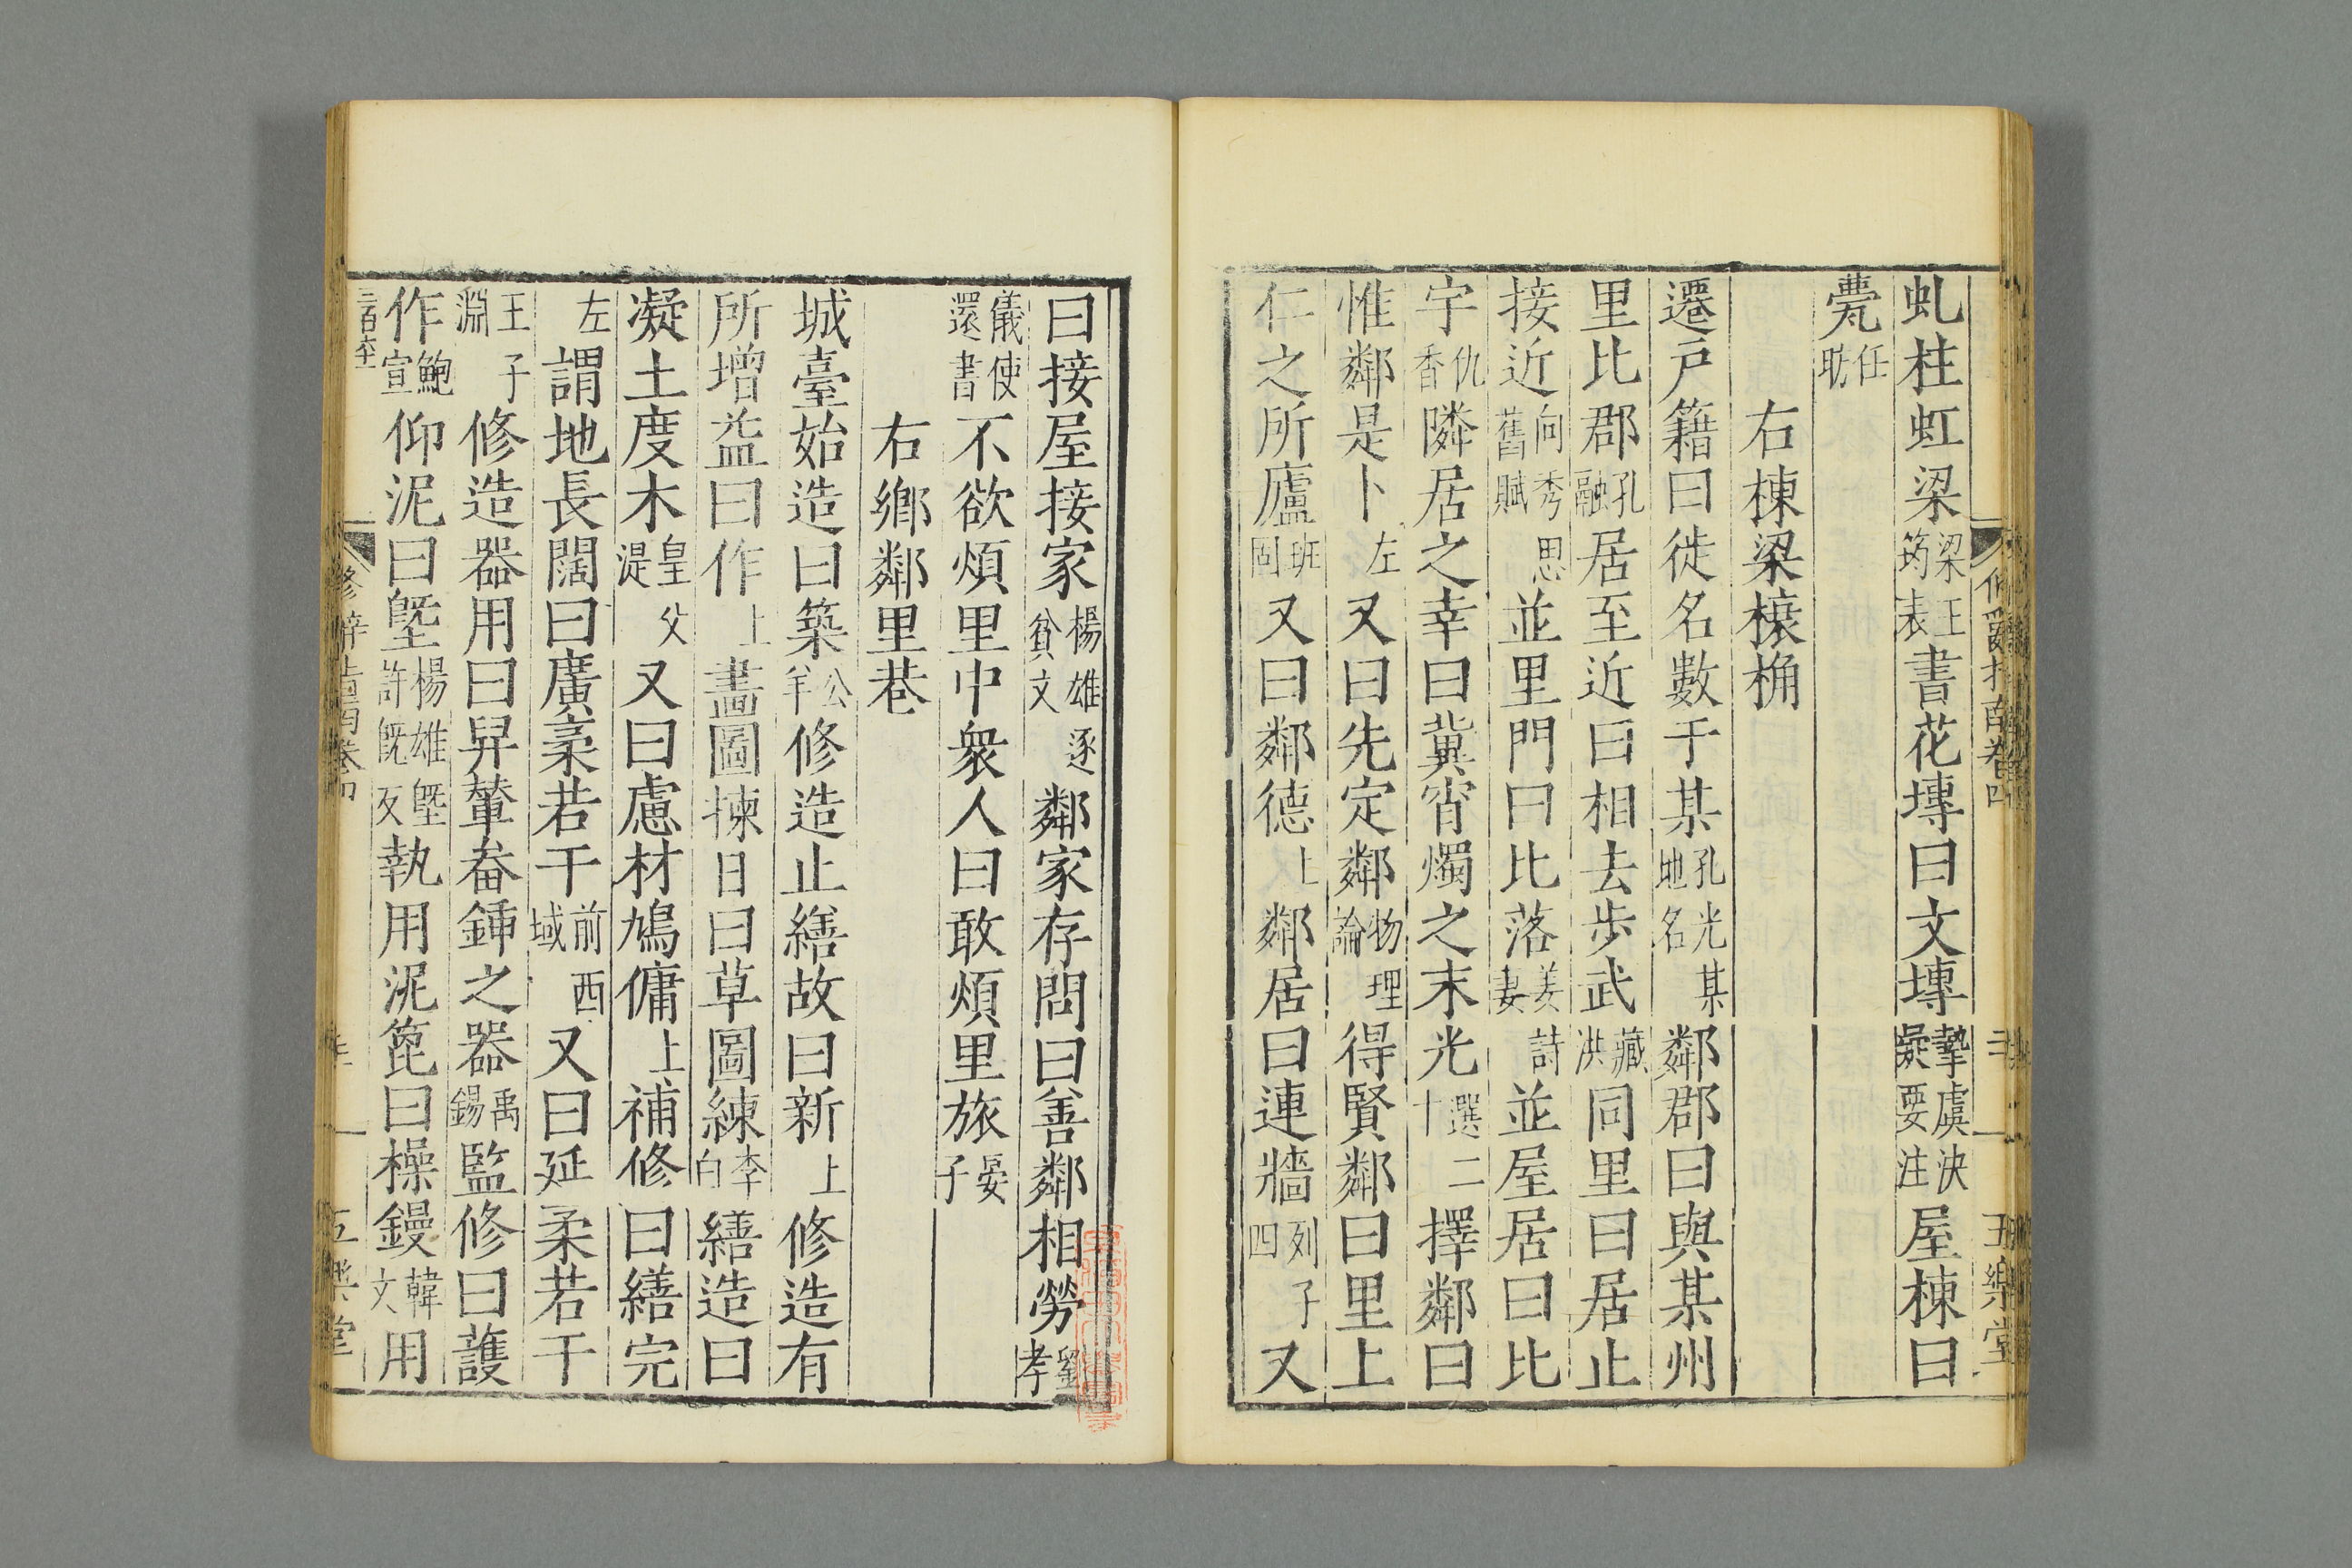 虬柱虹梁梁王筠表書花塼曰文塼摯虞決疑要注屋棟曰
甍任昉
右棟梁榱桷
遷戶籍曰徙名數于某孔光某地名鄰郡曰與某州
里比郡孔融居至近曰相去步武臧洪同里曰居止
接近向秀思舊賦並里門曰比落姜詩妻並屋居曰比
宇仇香隣居之幸曰冀宵燭之末光選二十擇鄰曰
惟鄰是卜左又曰先定鄰物理論得賢鄰曰里上
仁之所廬班固又曰鄰德上鄰居曰連牆列子四又
曰接屋接家楊雄逐貧文鄰家存問曰善鄰相勞劉孝
儀使還書不欲煩里中衆人曰敢煩里旅晏子
右鄉鄰里巷
城臺始造曰築公羊修造止繕故曰新上修造有
所增益曰作上畫圖揀日曰草圖練李白繕造曰
凝土度木皇父湜又曰慮材鳩傭上補修曰繕完
左謂地長闊曰廣袤若干前西域又曰延柔若干
王子淵修造器用曰舁輂畚鍤之器禹錫監修曰護
作鮑宣仰泥曰墍楊雄墍許旣反執用泥篦曰操鏝韓文用
五樂堂